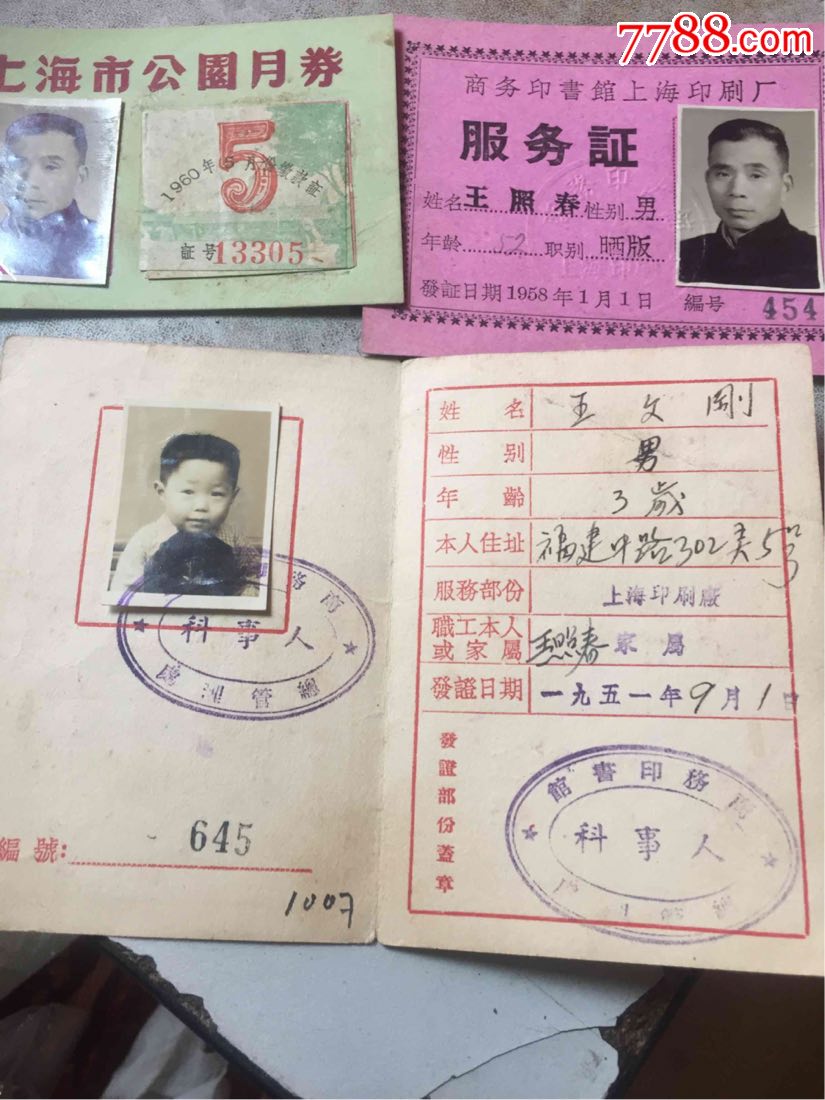 7788.com
上海市公園月券
1960年5月份缴款証
5
証号13305
商务印書館上海印刷厂
服务証
姓名王照春性别男
年龄52职别晒版
發証日期1958年1月1日 编号 454
姓名 王文剛
性别 男
年齡 3歲
本人住址 福建中路302弄5号
服務部份 上海印刷廠
職工本人或家屬 王照春家属
發證日期 一九五一年9月1日
發證部份蓋章
商務印書館
人事科
人事科
編號: 645
1007